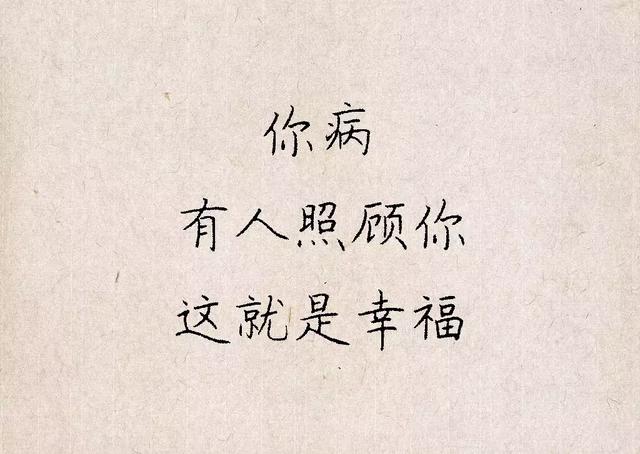 你病
有人照顾你
这就是幸福